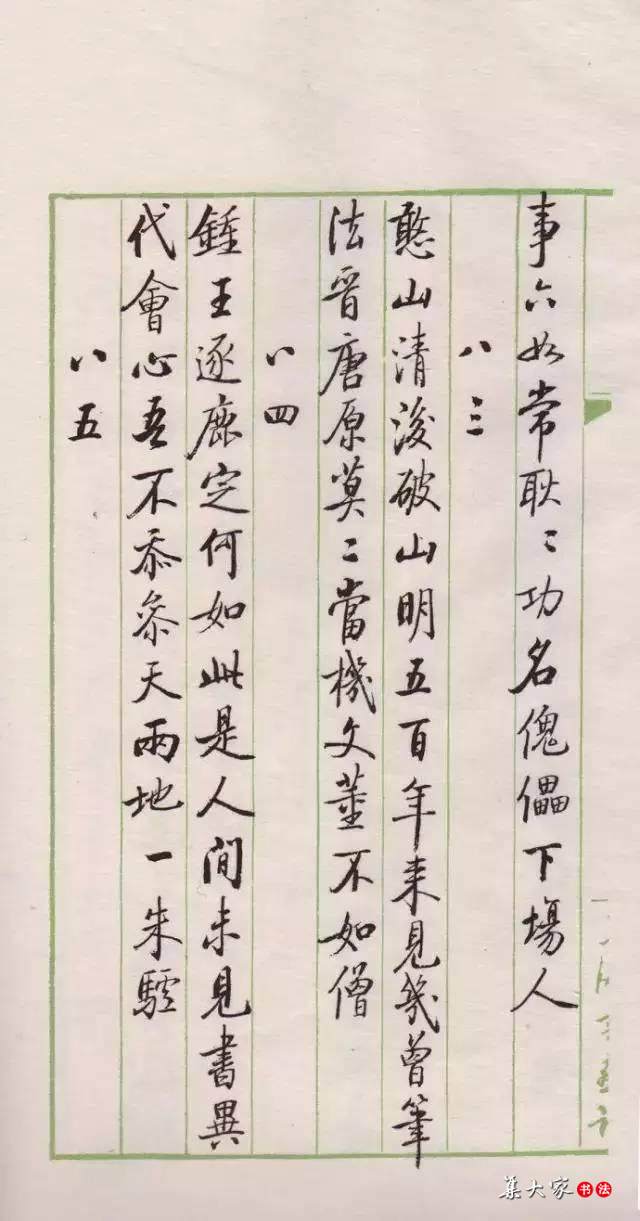 事六如常耿〻功名傀儡下場人
八三
憨山清後破山明五百年来見幾曾筆
法晉唐原莫二當機文董不如僧
八四
鍾王逐鹿定何如此是人間未見書異
代會心吾不忝參天兩地一朱驢
八五
集大家书法